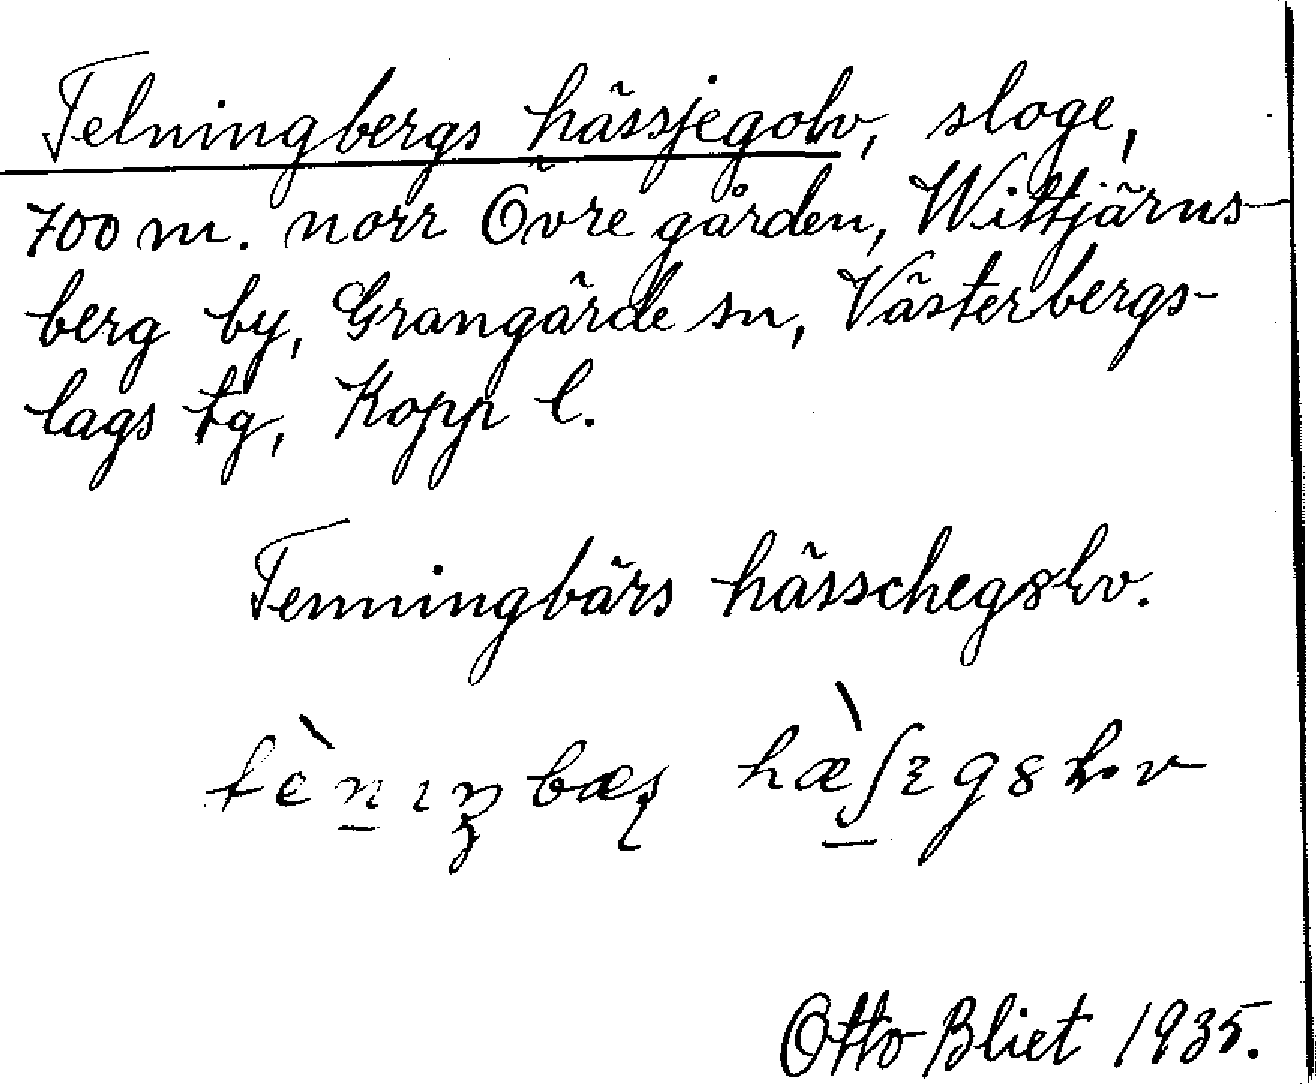 Telningbergs hässjegolv, sloge,
700 m. norr Övre gården, Wittjärns-
berg by, Grangärde sn, Västerbergs-
lags tg, Kopp l.
Tenningbärs hässchegȣlv.
tènıŋbæʂ hæ̀ʃɛgȣɫv
Otto Bliet 1935.